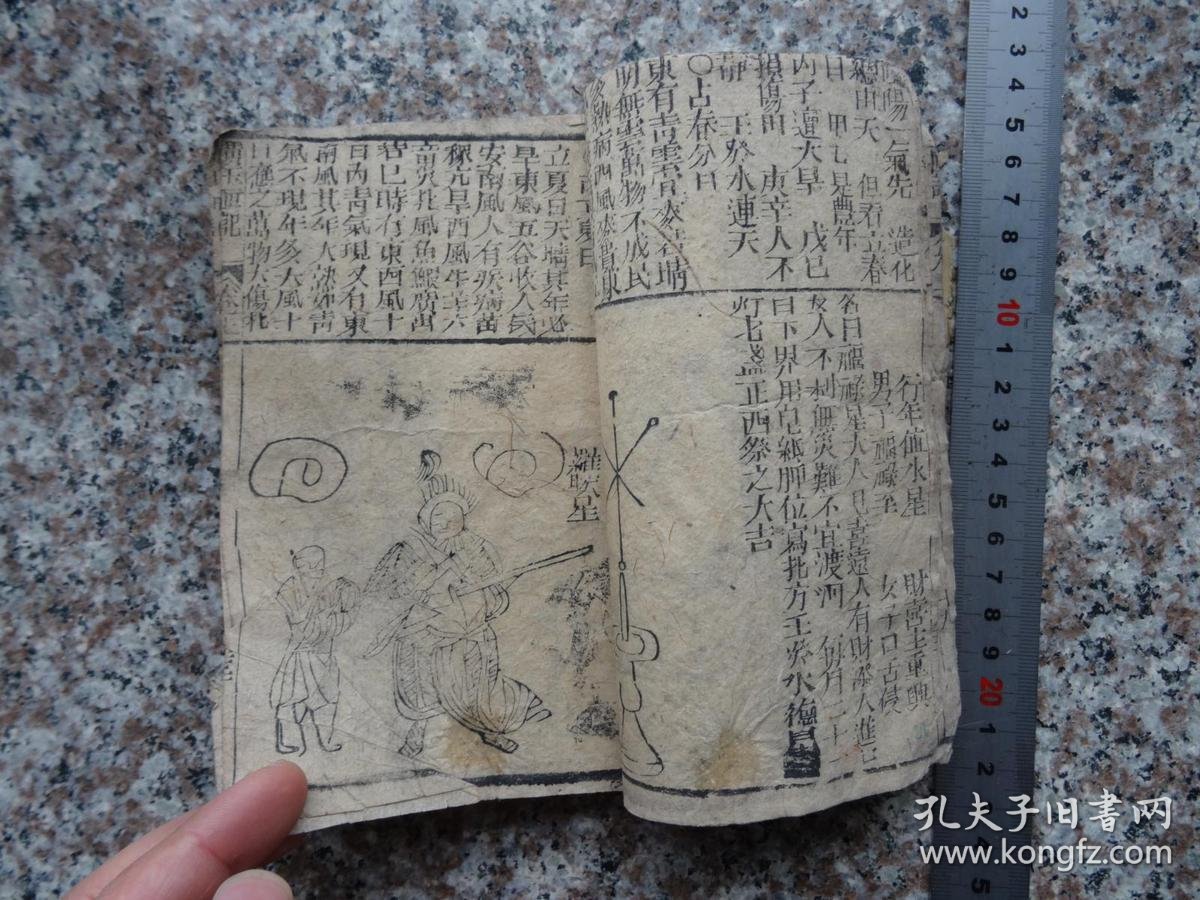 陰陽一氣先　造化
總由天　但看立春
日　甲乙見豊年
丙子遭大旱　戊己
損傷田　庚辛人不
靜　壬癸水連天
○占春分日
東有青雲
明無雲萬物不成民
行年值水星
財當主重興
男子福祿至
女子口舌侵
名曰福祿星大人見喜遠人有財添人進口
女人不利無災難不宜渡河　每月二十一
日下界用皂紙牌位寫北方壬癸水德星
灯七盞正西祭之大吉
立夏日天晴其年必
旱東風五谷收人民
安南風人有疾病苗
稼亢旱西風牛羊六
畜災北風魚鰕廣
時有東西風十
日內青氣現又有東
南風其年大熟如青
氣不現年多大風十
日應之萬物大傷北
羅睺星
孔夫子旧书网
www.kongfz.com